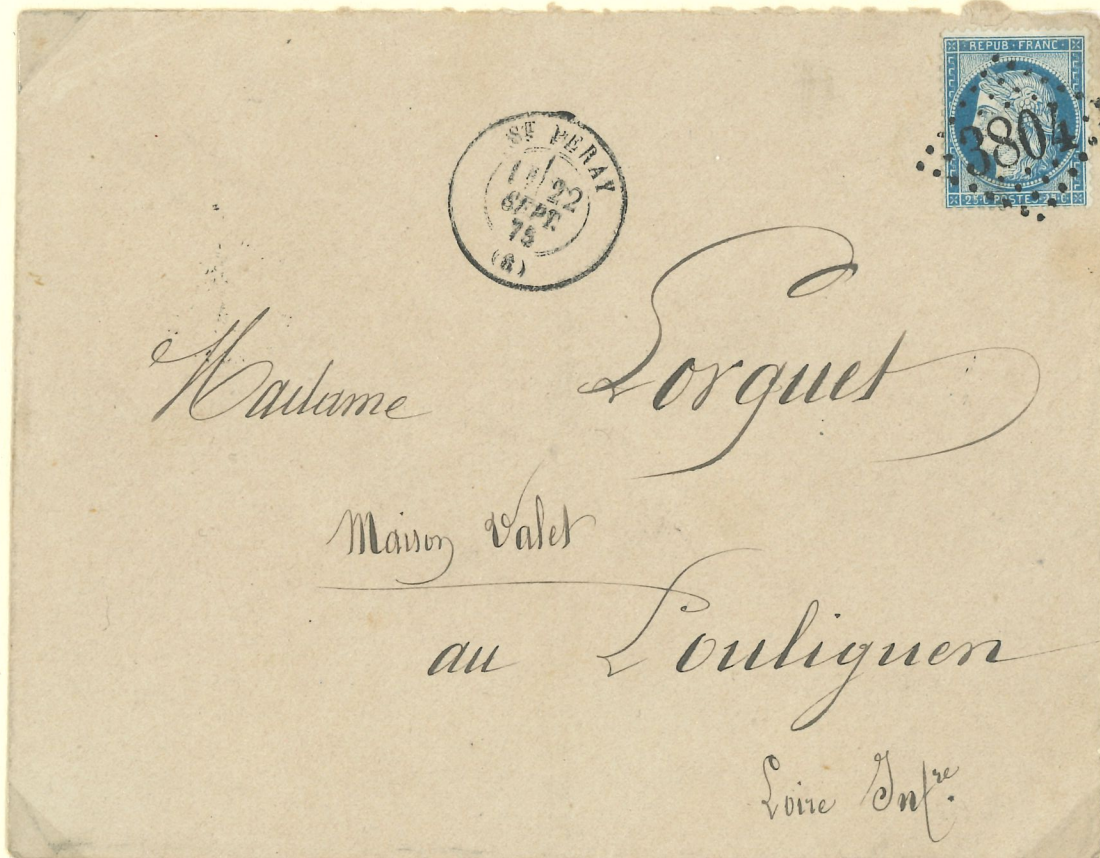 REPUB·FRANC·
3804
25·C·POSTES·25·C
ST PERAY
22
SEPT.
75
(6)
Madame Lorguet
Maison Valet
au Pouliguen
Loire Infre.